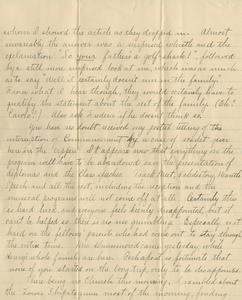 whom I showed the article as they dropped in. Almost
invariably the answer was a surprised whistle and the
exclamation "Is your father a golf shark?" followed
by a still more surprised look at me, which was as much
as to say "Well it certainly doesn't run in the family".
From what I hear though, they would certainly have to
qualify the statement about the rest of the family. (Oh!
Carols!) Also ask if he doesn't think so.
You have no doubt received my postal telling of the
interruption of Commencement by a case of scarlet
here on the campus. It appears now that everything on the
program will have to be abandoned save the presentation of
diplomas and the Class speeches. Track Meet, Salutatory, Ivanitch
Speech and all the rest, including the reception and the
musical programme will not come off at all. Certainly this
is hard luck and everyone feels keenly disappointed, but it
can't be helped so there is no use grumbling. Especially is it
hard on the fellows' parents who had come out to stay through
the entire time. Mrs. came yesterday while
whole family are here. Perhaps it is fortunate that
none of you started on the long trip, only to be disappointed.
There being no Church this morning, I rambled about
the most of the morning, finding